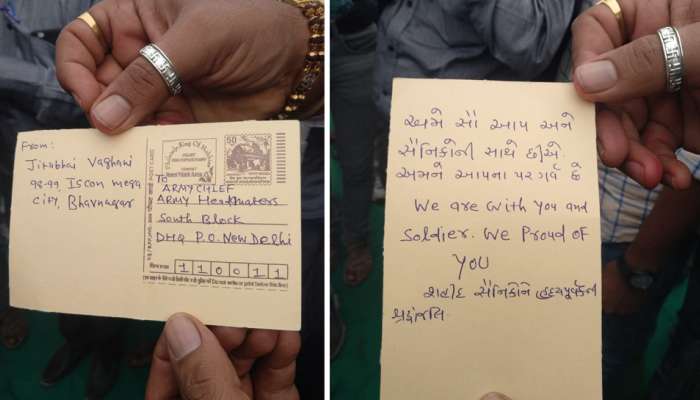 From:
Jitubhai Vaghani
98-99, Iscon mega
city, Bhavnagar
POST CARD
50
To
ARMY CHIEF
ARMY Headquaters
South Block
DHQ P.O. New Delhi
110011
અમે સૌ આપ અને
સૈનિકોની સાથે છીએ.
અમને આપના પર ગર્વ છે
We are with you and
Soldier. We Proud of
YOU
શહીદ સૈનિકોને હ્રદયપૂર્વકની
શ્રદ્ધાંજલિ.